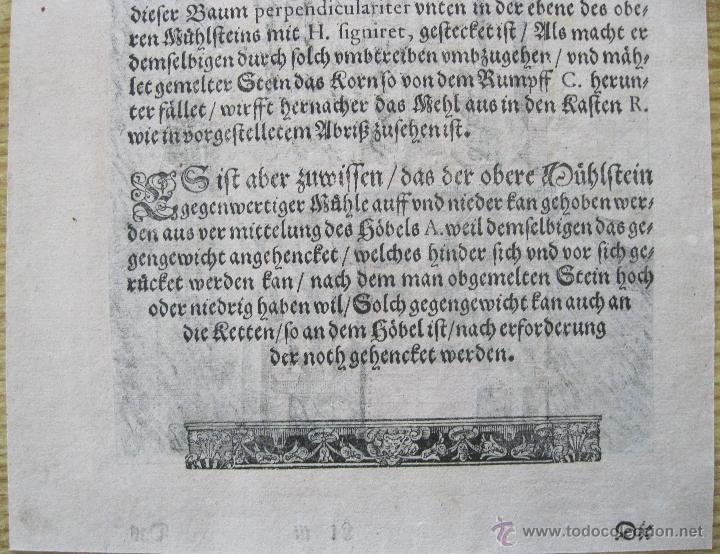 dieser Baum perpendiculariter vnten in der ebene des obe-
ren Mühlsteins mit H. signiret, gestecket ist / Als macht er
demselbigen durch solch vmbtreiben vmbzugehen / vnd mäh-
let gemelter Stein das Korn so von dem Rumpff C. herun-
ter fället / wirfft hernacher das Mehl aus in den Kasten R.
wie in vorgestelletem Abriß zusehen ist.
ES ist aber zuwissen / das der obere Mühlstein
gegenwertiger Mühle auff vnd nieder kan gehoben wer-
den aus vermittelung des Höbels A. weil demselbigen das ge-
gengewicht angehencket / welches hinder sich vnd vor sich ge-
rücket werden kan / nach dem man obgemelten Stein hoch
oder niedrig haben wil / Solch gegengewicht kan auch an
die Ketten / so an dem Höbel ist / nach erforderung
der noth gehencket werden.
Die
todocoleccion.net